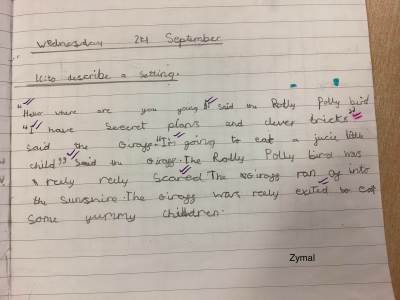 Wednesday 24 September
L.I: to describe a setting.
"Hello where are you going?" said the Rolly Polly bird
"I have secret plans and clever tricks"
said the Giragg. "I'm going to eat a jucie little
child" said the Giragg. The Rolly Polly bird was
reely reely scared. The Giragg ran off into
the sunshine. The Giragg was reely exited to eat
some yummy children.
Zymal